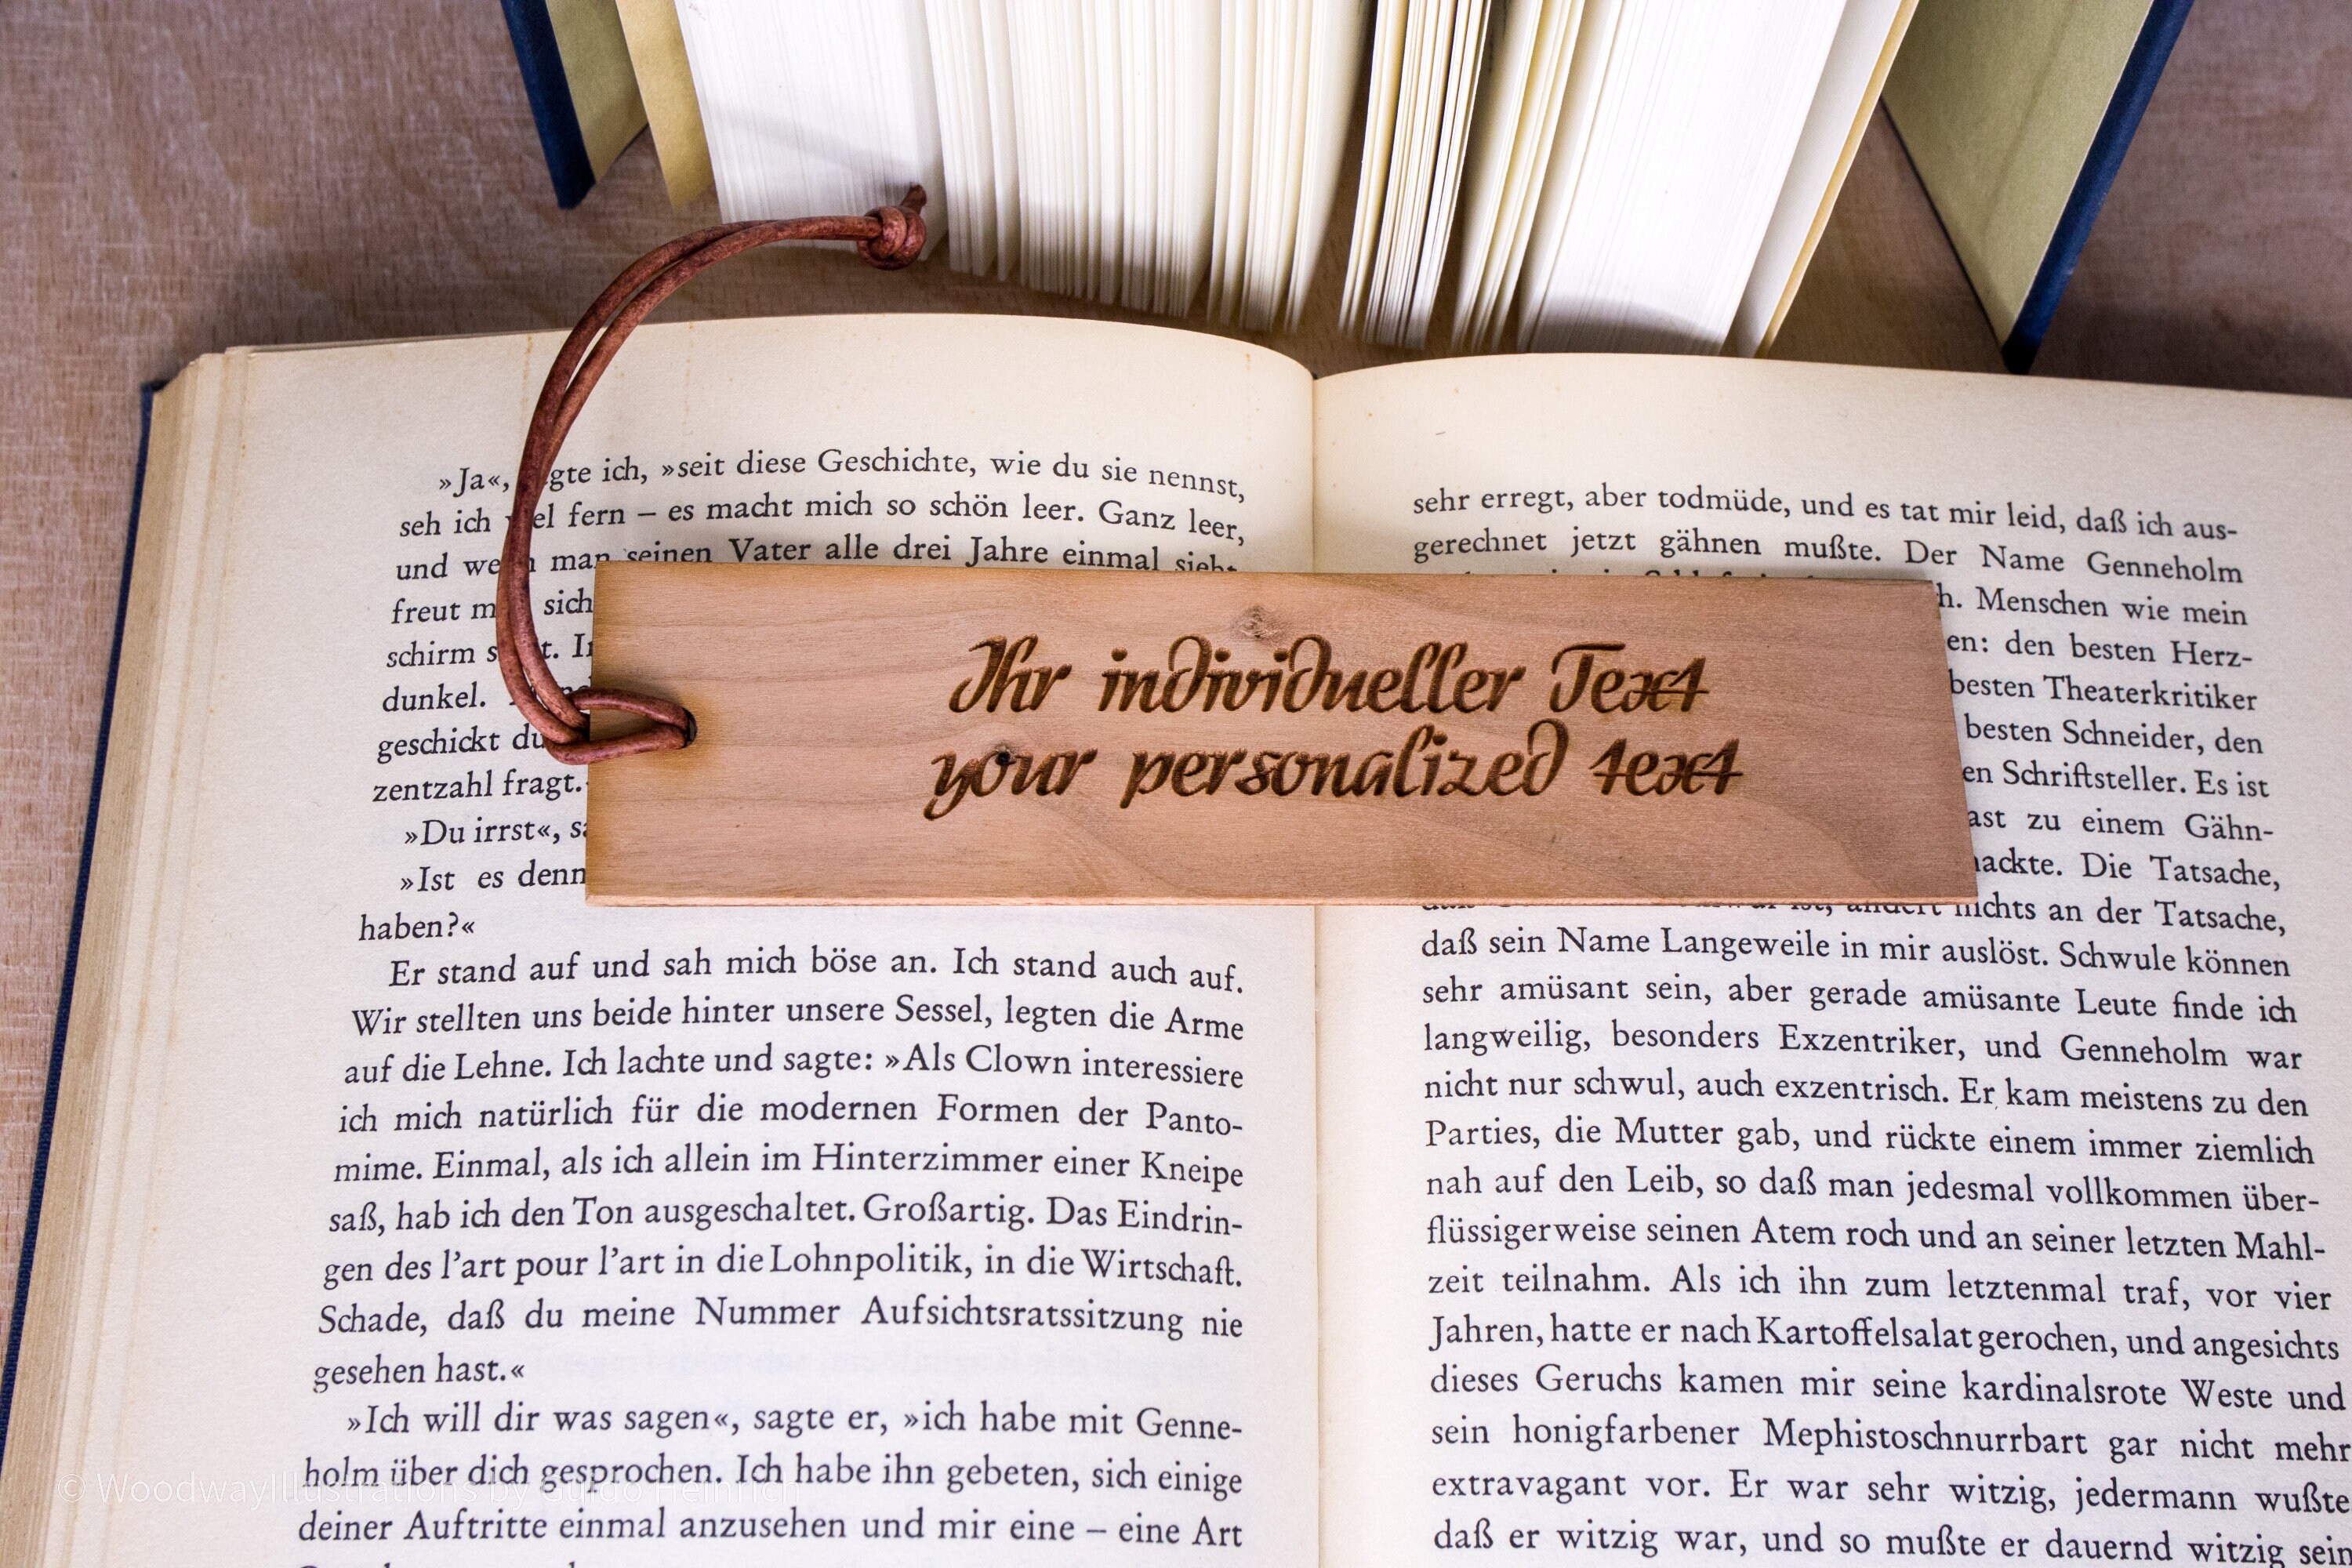 »Ja«, ich, »seit diese Geschichte, wie du sie nennst,
seh ich fern – es macht mich so schön leer. Ganz leer,
und man seinen Vater alle drei Jahre einmal sieht
freut sich
schirm
dunkel.
geschickt
zentzahl fragt.
»Du irrst«,
»Ist es denn
haben?«
Er stand auf und sah mich böse an. Ich stand auch auf.
Wir stellten uns beide hinter unsere Sessel, legten die Arme
auf die Lehne. Ich lachte und sagte: »Als Clown interessiere
ich mich natürlich für die modernen Formen der Panto-
mime. Einmal, als ich allein im Hinterzimmer einer Kneipe
saß, hab ich den Ton ausgeschaltet. Großartig. Das Eindrin-
gen des l'art pour l'art in die Lohnpolitik, in die Wirtschaft.
Schade, daß du meine Nummer Aufsichtsratssitzung nie
gesehen hast.«
»Ich will dir was sagen«, sagte er, »ich habe mit Genne-
holm über dich gesprochen. Ich habe ihn gebeten, sich einige
deiner Auftritte einmal anzusehen und mir eine – eine Art
Ihr individueller Text
your personalized text
sehr erregt, aber todmüde, und es tat mir leid, daß ich aus-
gerechnet jetzt gähnen mußte. Der Name Genneholm
Menschen wie mein
den besten Herz-
besten Theaterkritiker
besten Schneider, den
Schriftsteller. Es ist
zu einem Gähn-
Die Tatsache,
nichts an der Tatsache,
daß sein Name Langeweile in mir auslöst. Schwule können
sehr amüsant sein, aber gerade amüsante Leute finde ich
langweilig, besonders Exzentriker, und Genneholm war
nicht nur schwul, auch exzentrisch. Er kam meistens zu den
Parties, die Mutter gab, und rückte einem immer ziemlich
nah auf den Leib, so daß man jedesmal vollkommen über-
flüssigerweise seinen Atem roch und an seiner letzten Mahl-
zeit teilnahm. Als ich ihn zum letztenmal traf, vor vier
Jahren, hatte er nach Kartoffelsalat gerochen, und angesichts
dieses Geruchs kamen mir seine kardinalsrote Weste und
sein honigfarbener Mephistoschnurrbart gar nicht mehr
extravagant vor. Er war sehr witzig, jedermann wußte
daß er witzig war, und so mußte er dauernd witzig sein
© WoodwayIllustrations by Guido Heinrich